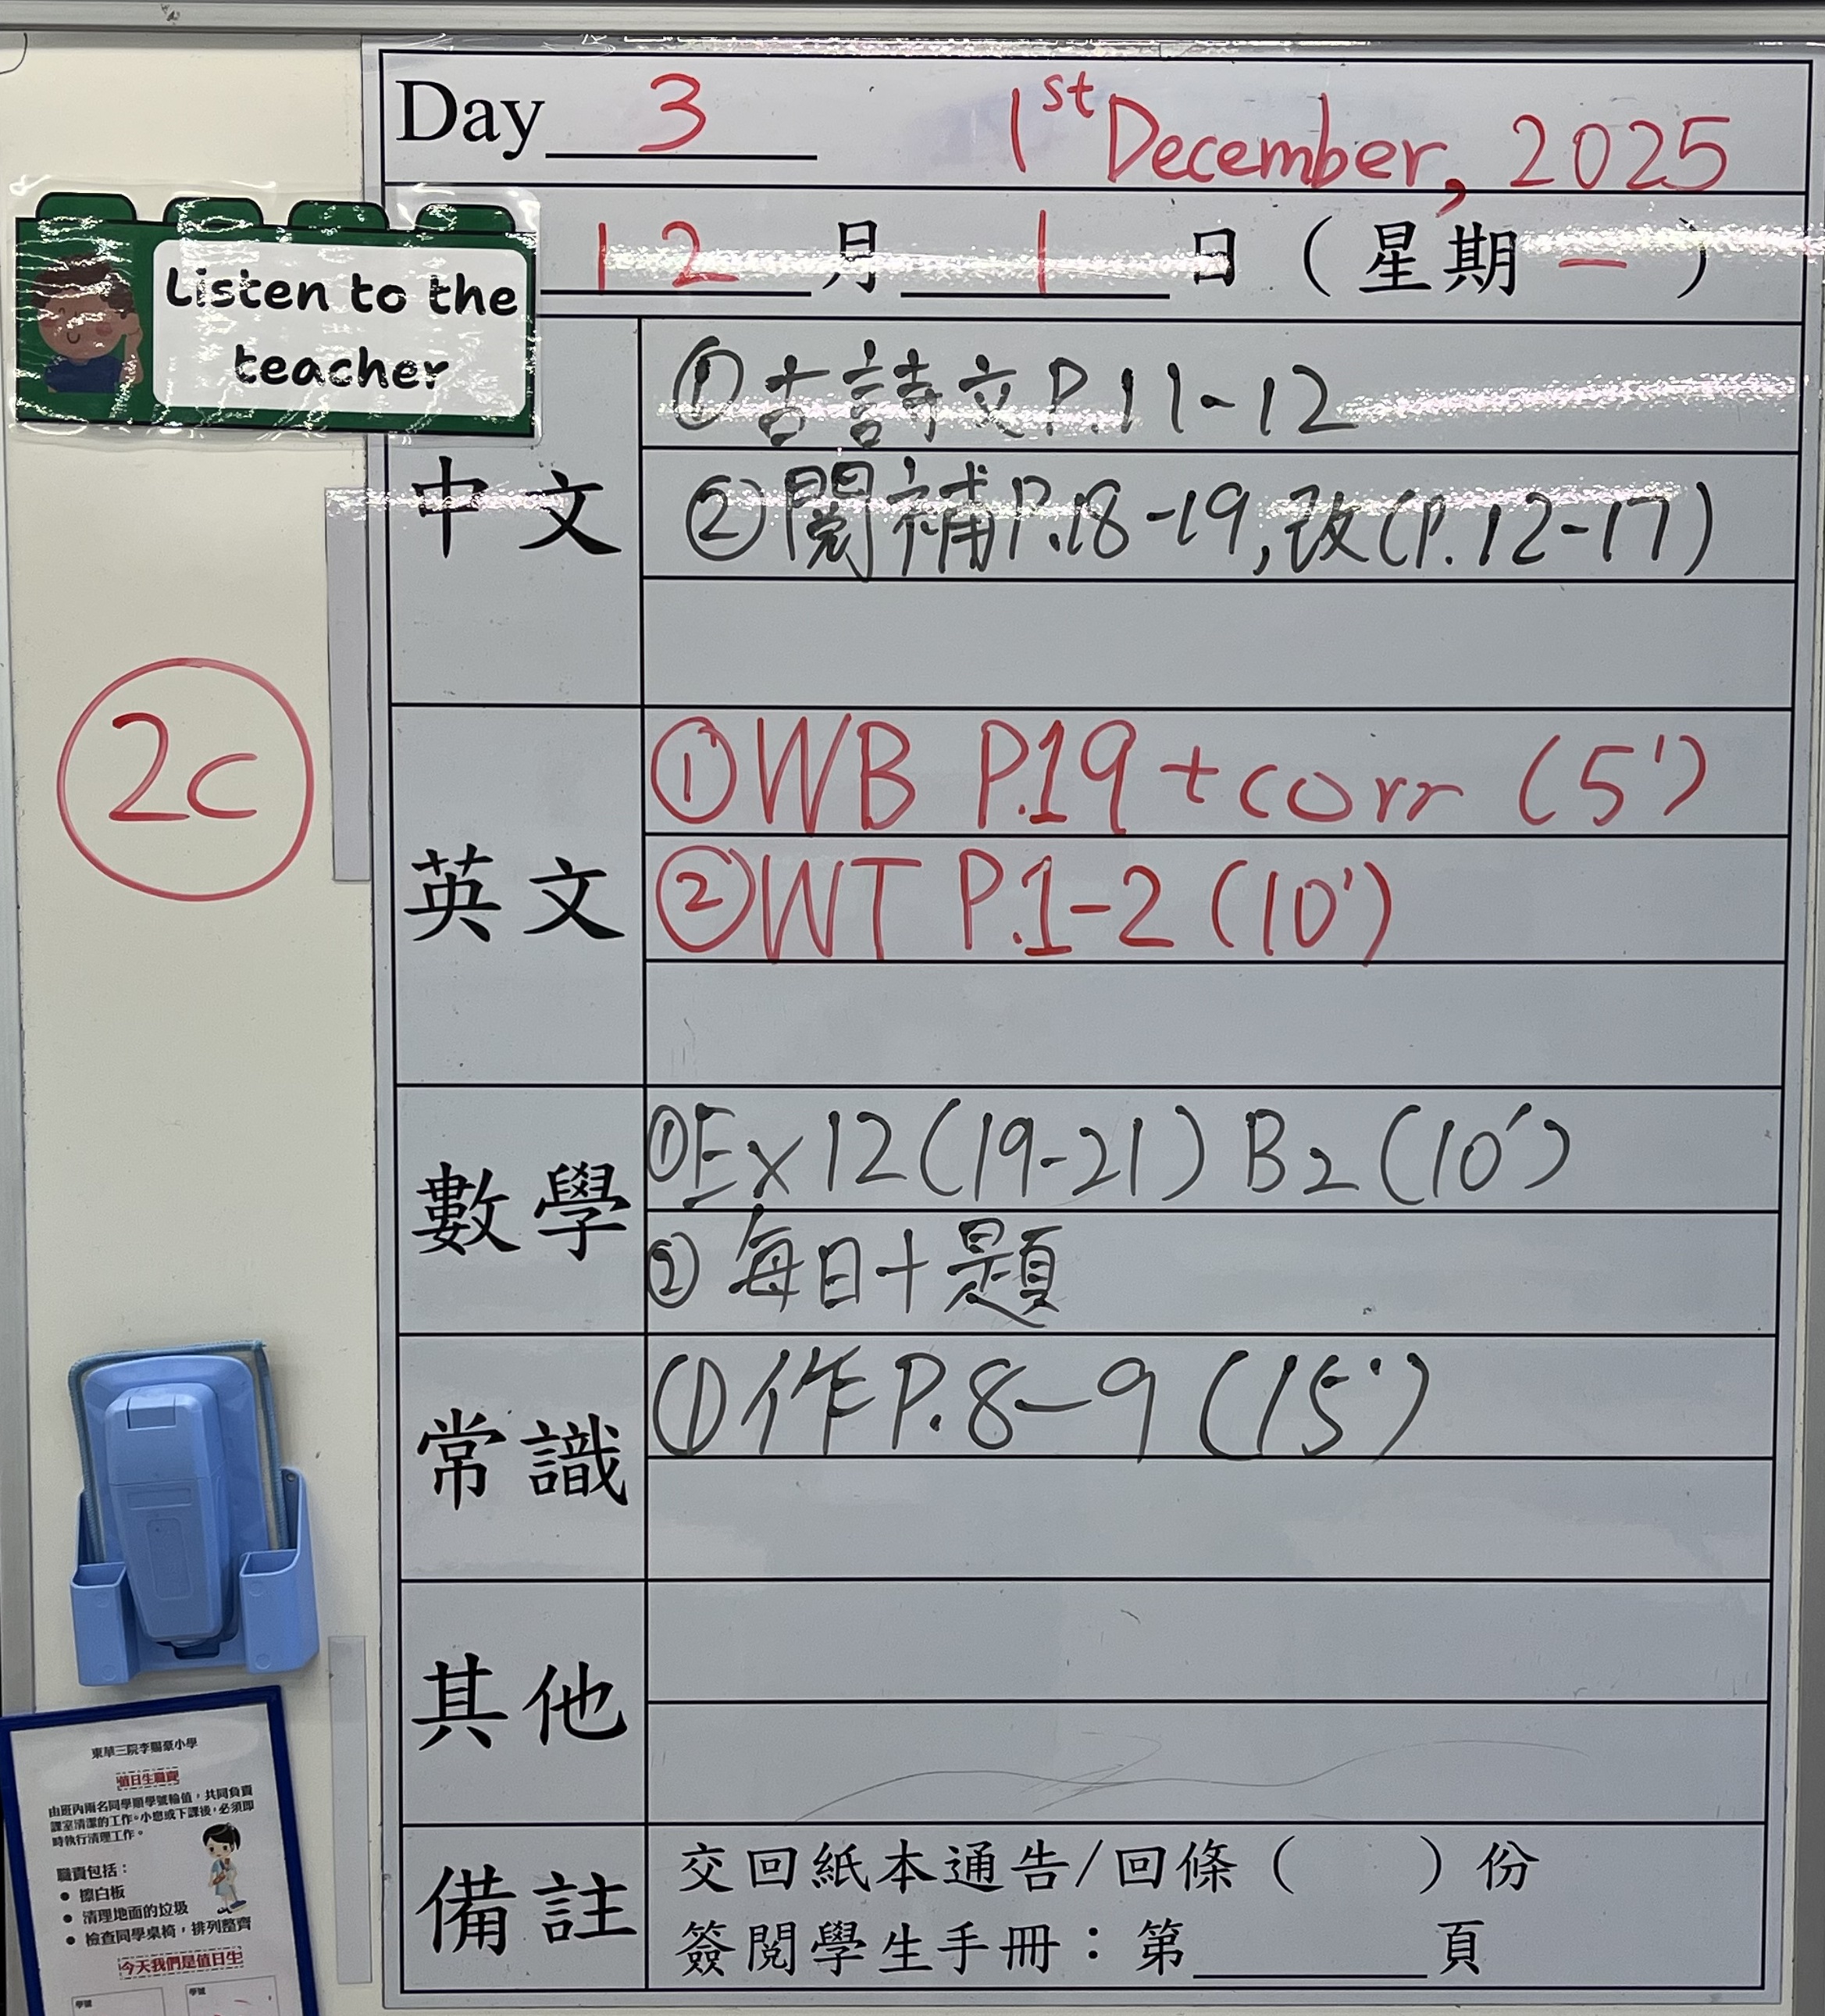 Day 3 1st December, 2025
12 月 1 日 (星期 一)
Listen to the
teacher
中文
①古詩文P.11-12
②閱補P.18-19,改(P.12-17)
2C
英文
①WB P.19 + corr (5')
②WT P.1-2 (10')
數學
①Ex12(19-21) B2 (10')
②每日十題
常識
①作P.8-9 (15')
其他
備註
交回紙本通告/回條( )份
簽閱學生手冊：第 頁
東華三院李賜豪小學
值日生職責
由班內兩名同學順學號輪值，共同負責
課室清潔的工作。小息或下課後，必須即
時執行清理工作。
職責包括：
• 擦白板
• 清理地面的垃圾
• 檢查同學桌椅，排列整齊
今天我們是值日生
學號 學號